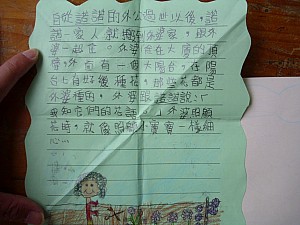 自從諾諾的外公過世以後，諾
諾一家人就搬到外婆家，跟外
婆一起住。外婆住在大廈的頂
樓，外面有一個大陽台，在陽
台上有好幾種花，那些花都是
外婆種的。外婆跟諾諾說：「
我知道他們的花語。」外婆照顧
花時，就像照顧小寶寶一樣細
心